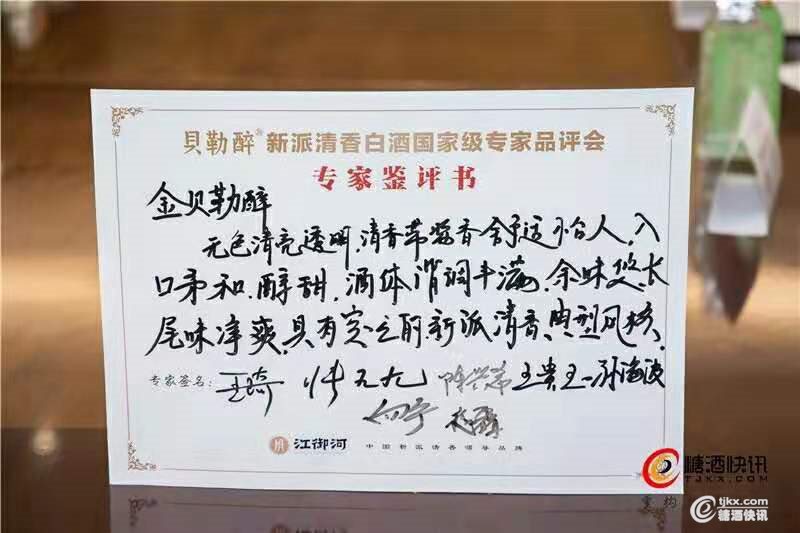 贝勒醉® 新派清香白酒国家级专家品评会
专家鉴评书
金贝勒醉
无色清亮透明,清香带酱香舒适怡人,入
口柔和,醇甜,酒体谐调丰满,余味悠长
尾味净爽,具有突出的新派清香、典型风格。
专家签名: 王琦 陈兴希 王贵玉 孙海波
江御河 中国新派清香领导品牌
糖酒快讯
TJKX.COM
重构
tjkx.com
糖酒快讯